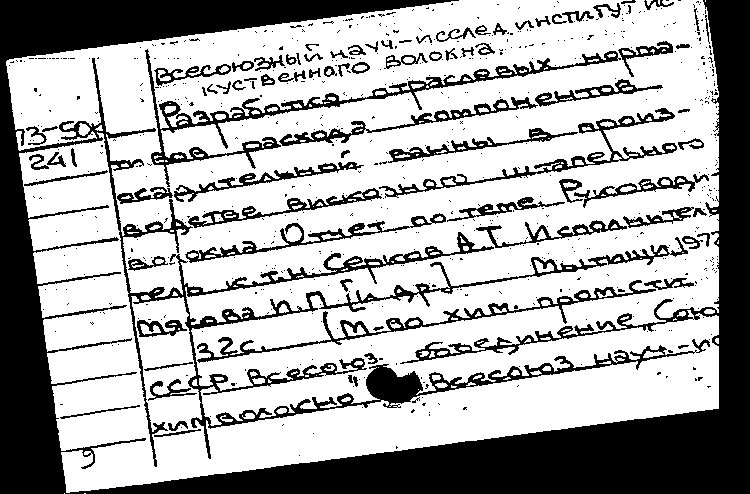 Всесоюзный науч.-исслед. институт ис-
куственного волокна.
Разработка отраслевых норма-
73-50к
тивов расхода компонентов
241
осадительной ванны в произ-
водстве вискозного штапельного
волокна Отчет по теме. Руководи-
тель к.т.н. Серков А.Т. Исполнитель
Мягкова И.П [и др.] Мытищи, 197
32с. (М-во хим. пром-сти
СССР. Всесоюз. объединение „Союз
химволокно". Всесоюз науч.-ис
9